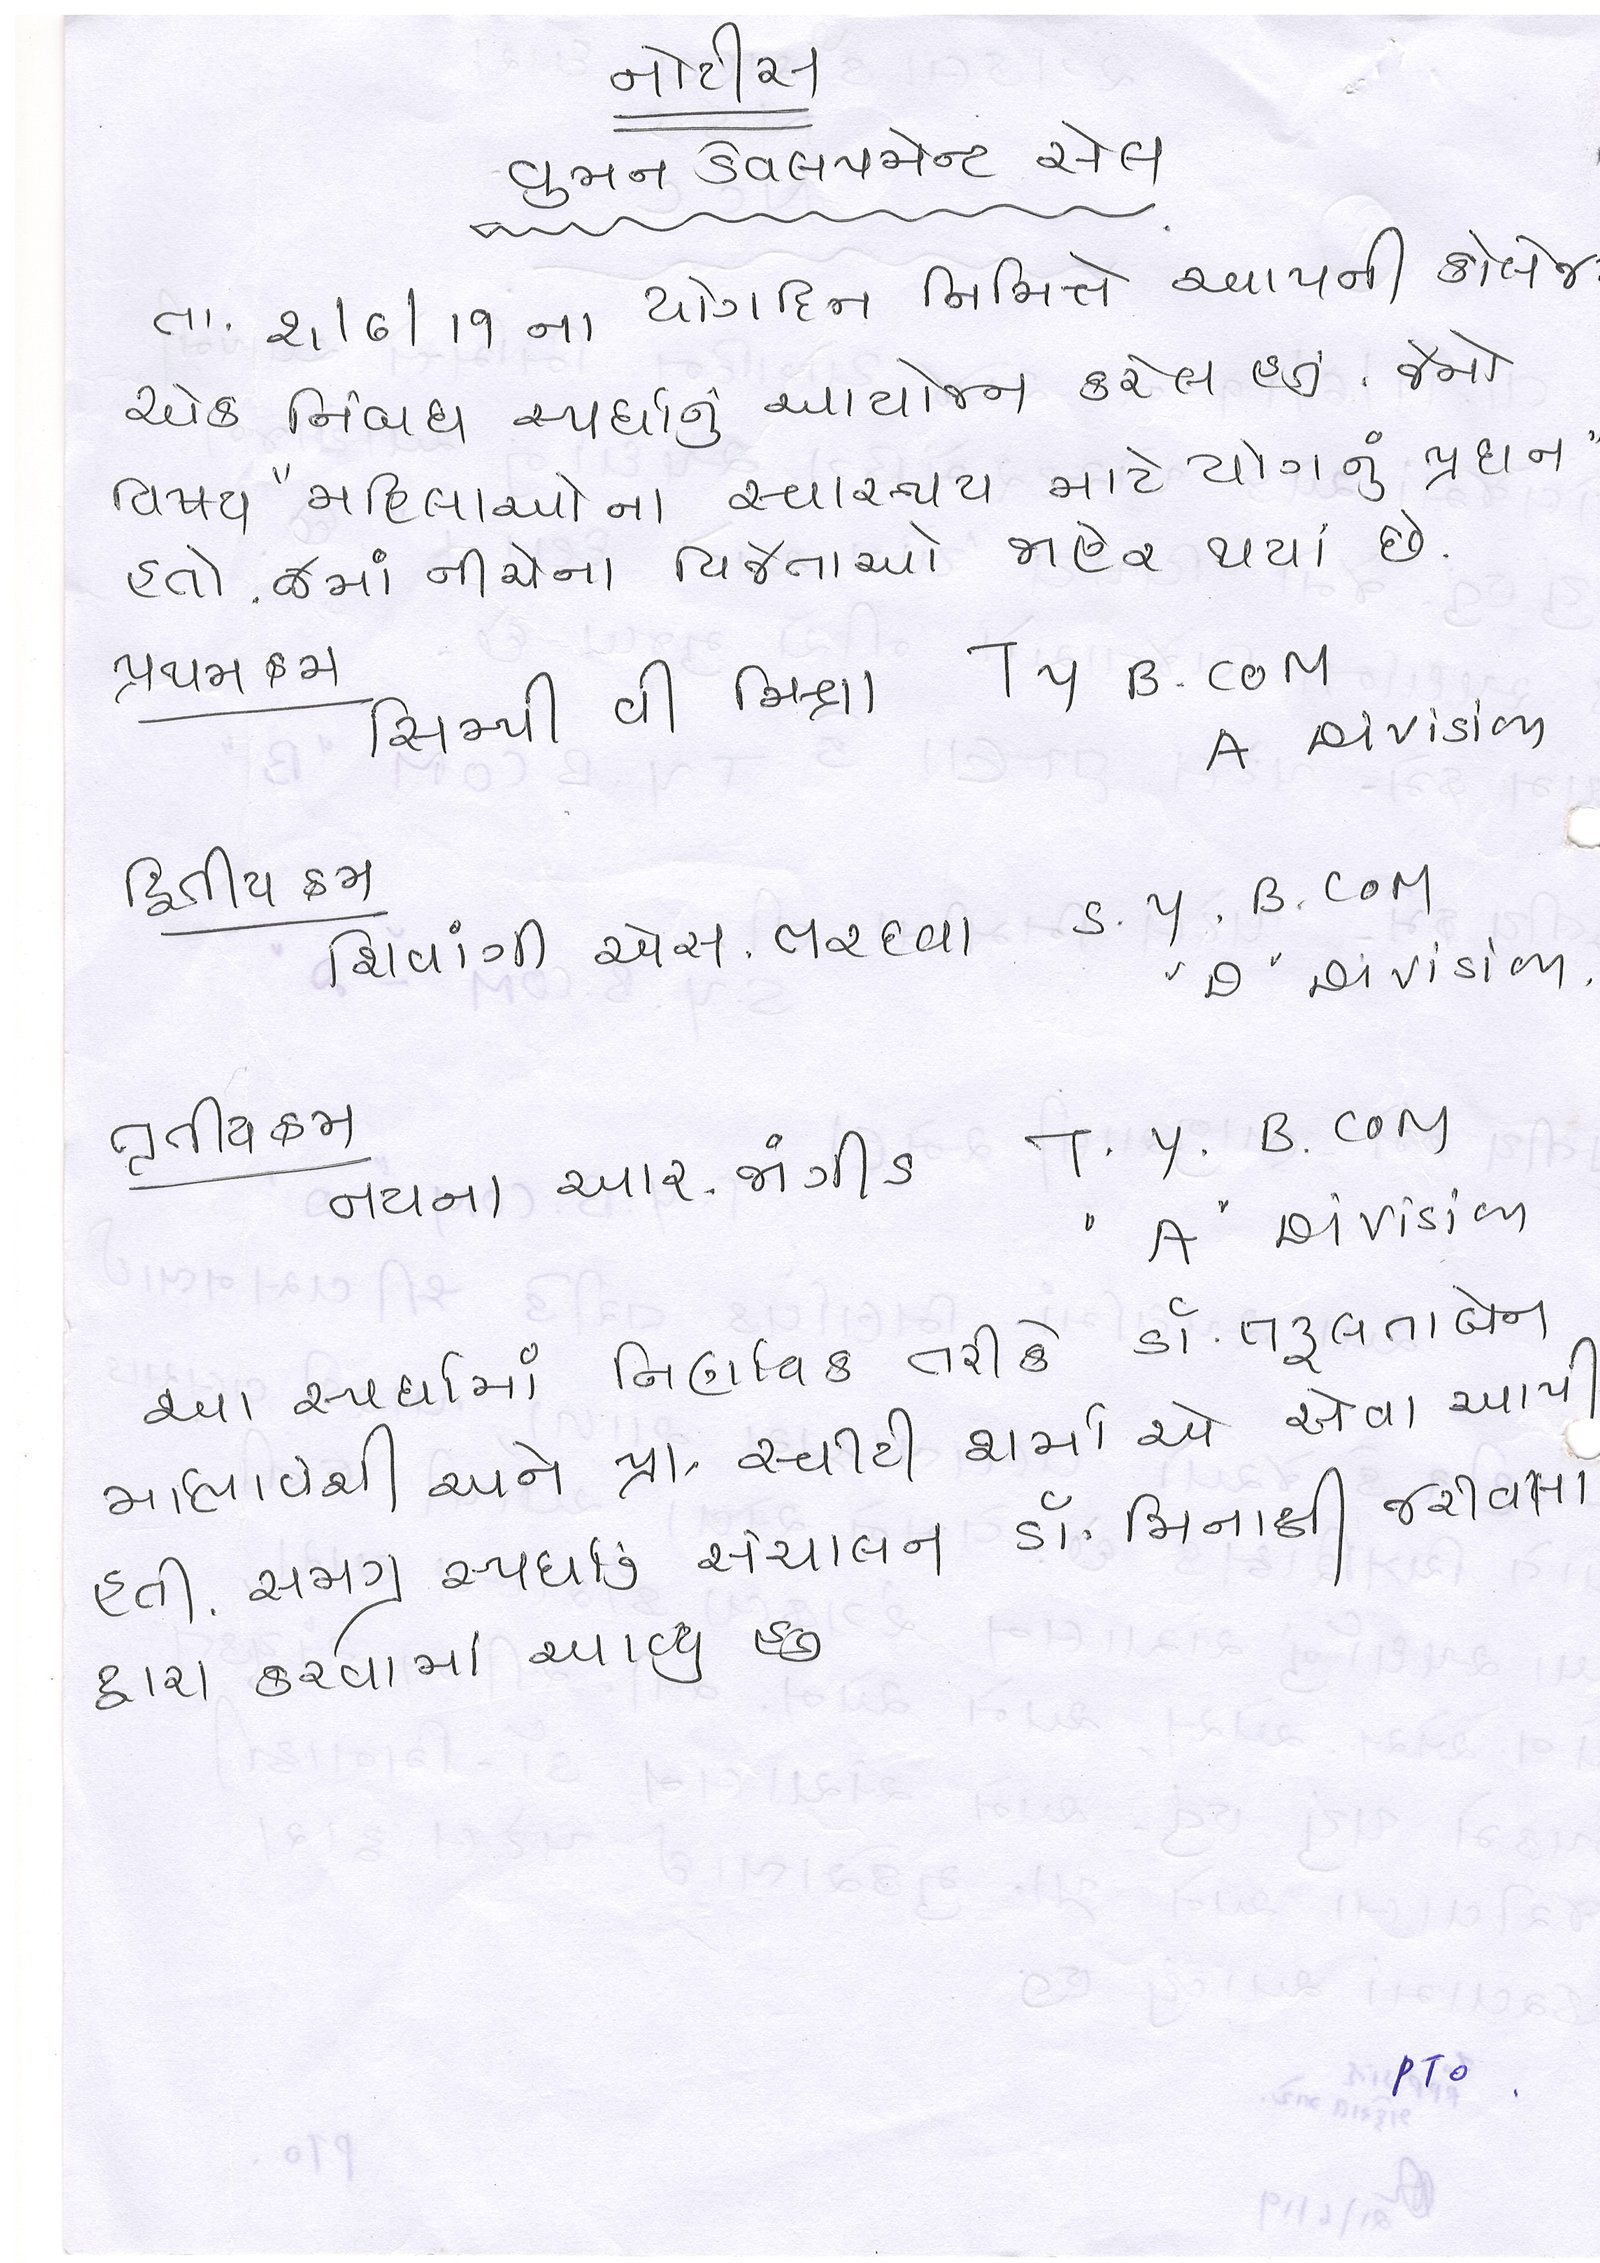 નોટીસ
વુમન ડેવલપમેન્ટ સેલ
તા. ૨૧/૬/૧૯ ના યોગદિન નિમિત્તે આપની કોલેજમાં
એક નિબંધ સ્પર્ધાનું આયોજન કરેલ હતું. જેમાં
વિષય "મહિલાઓના સ્વાસ્થ્ય માટે યોગનું પ્રધાન"
હતો. જેમાં નીચેના વિજેતાઓ જાહેર થયાં છે.
પ્રથમ ક્રમ
સિમ્પી વી મિશ્રા TY B.COM
A Division
દ્વિતીય ક્રમ
શિવાંગી એસ. S.Y. B.COM
"D" Division.
તૃતીય ક્રમ
નયના આર. જાંગીડ T.Y. B.COM
"A" Division
આ સ્પર્ધામાં નિર્ણાયક તરીકે ડૉ. તરૂલતાબેન
અને પ્રા. સ્વીટી શર્મા એ સેવા આપી
હતી. સમગ્ર સ્પર્ધાનું સંચાલન ડૉ. મિનાક્ષી જરીવાલા
દ્વારા કરવામાં આવ્યુ હતુ
PTO.